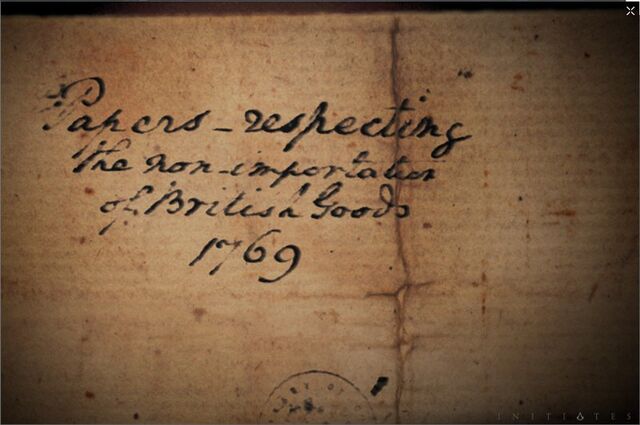 Papers - respecting
the non-importation
of British Goods
1769
INITIATES